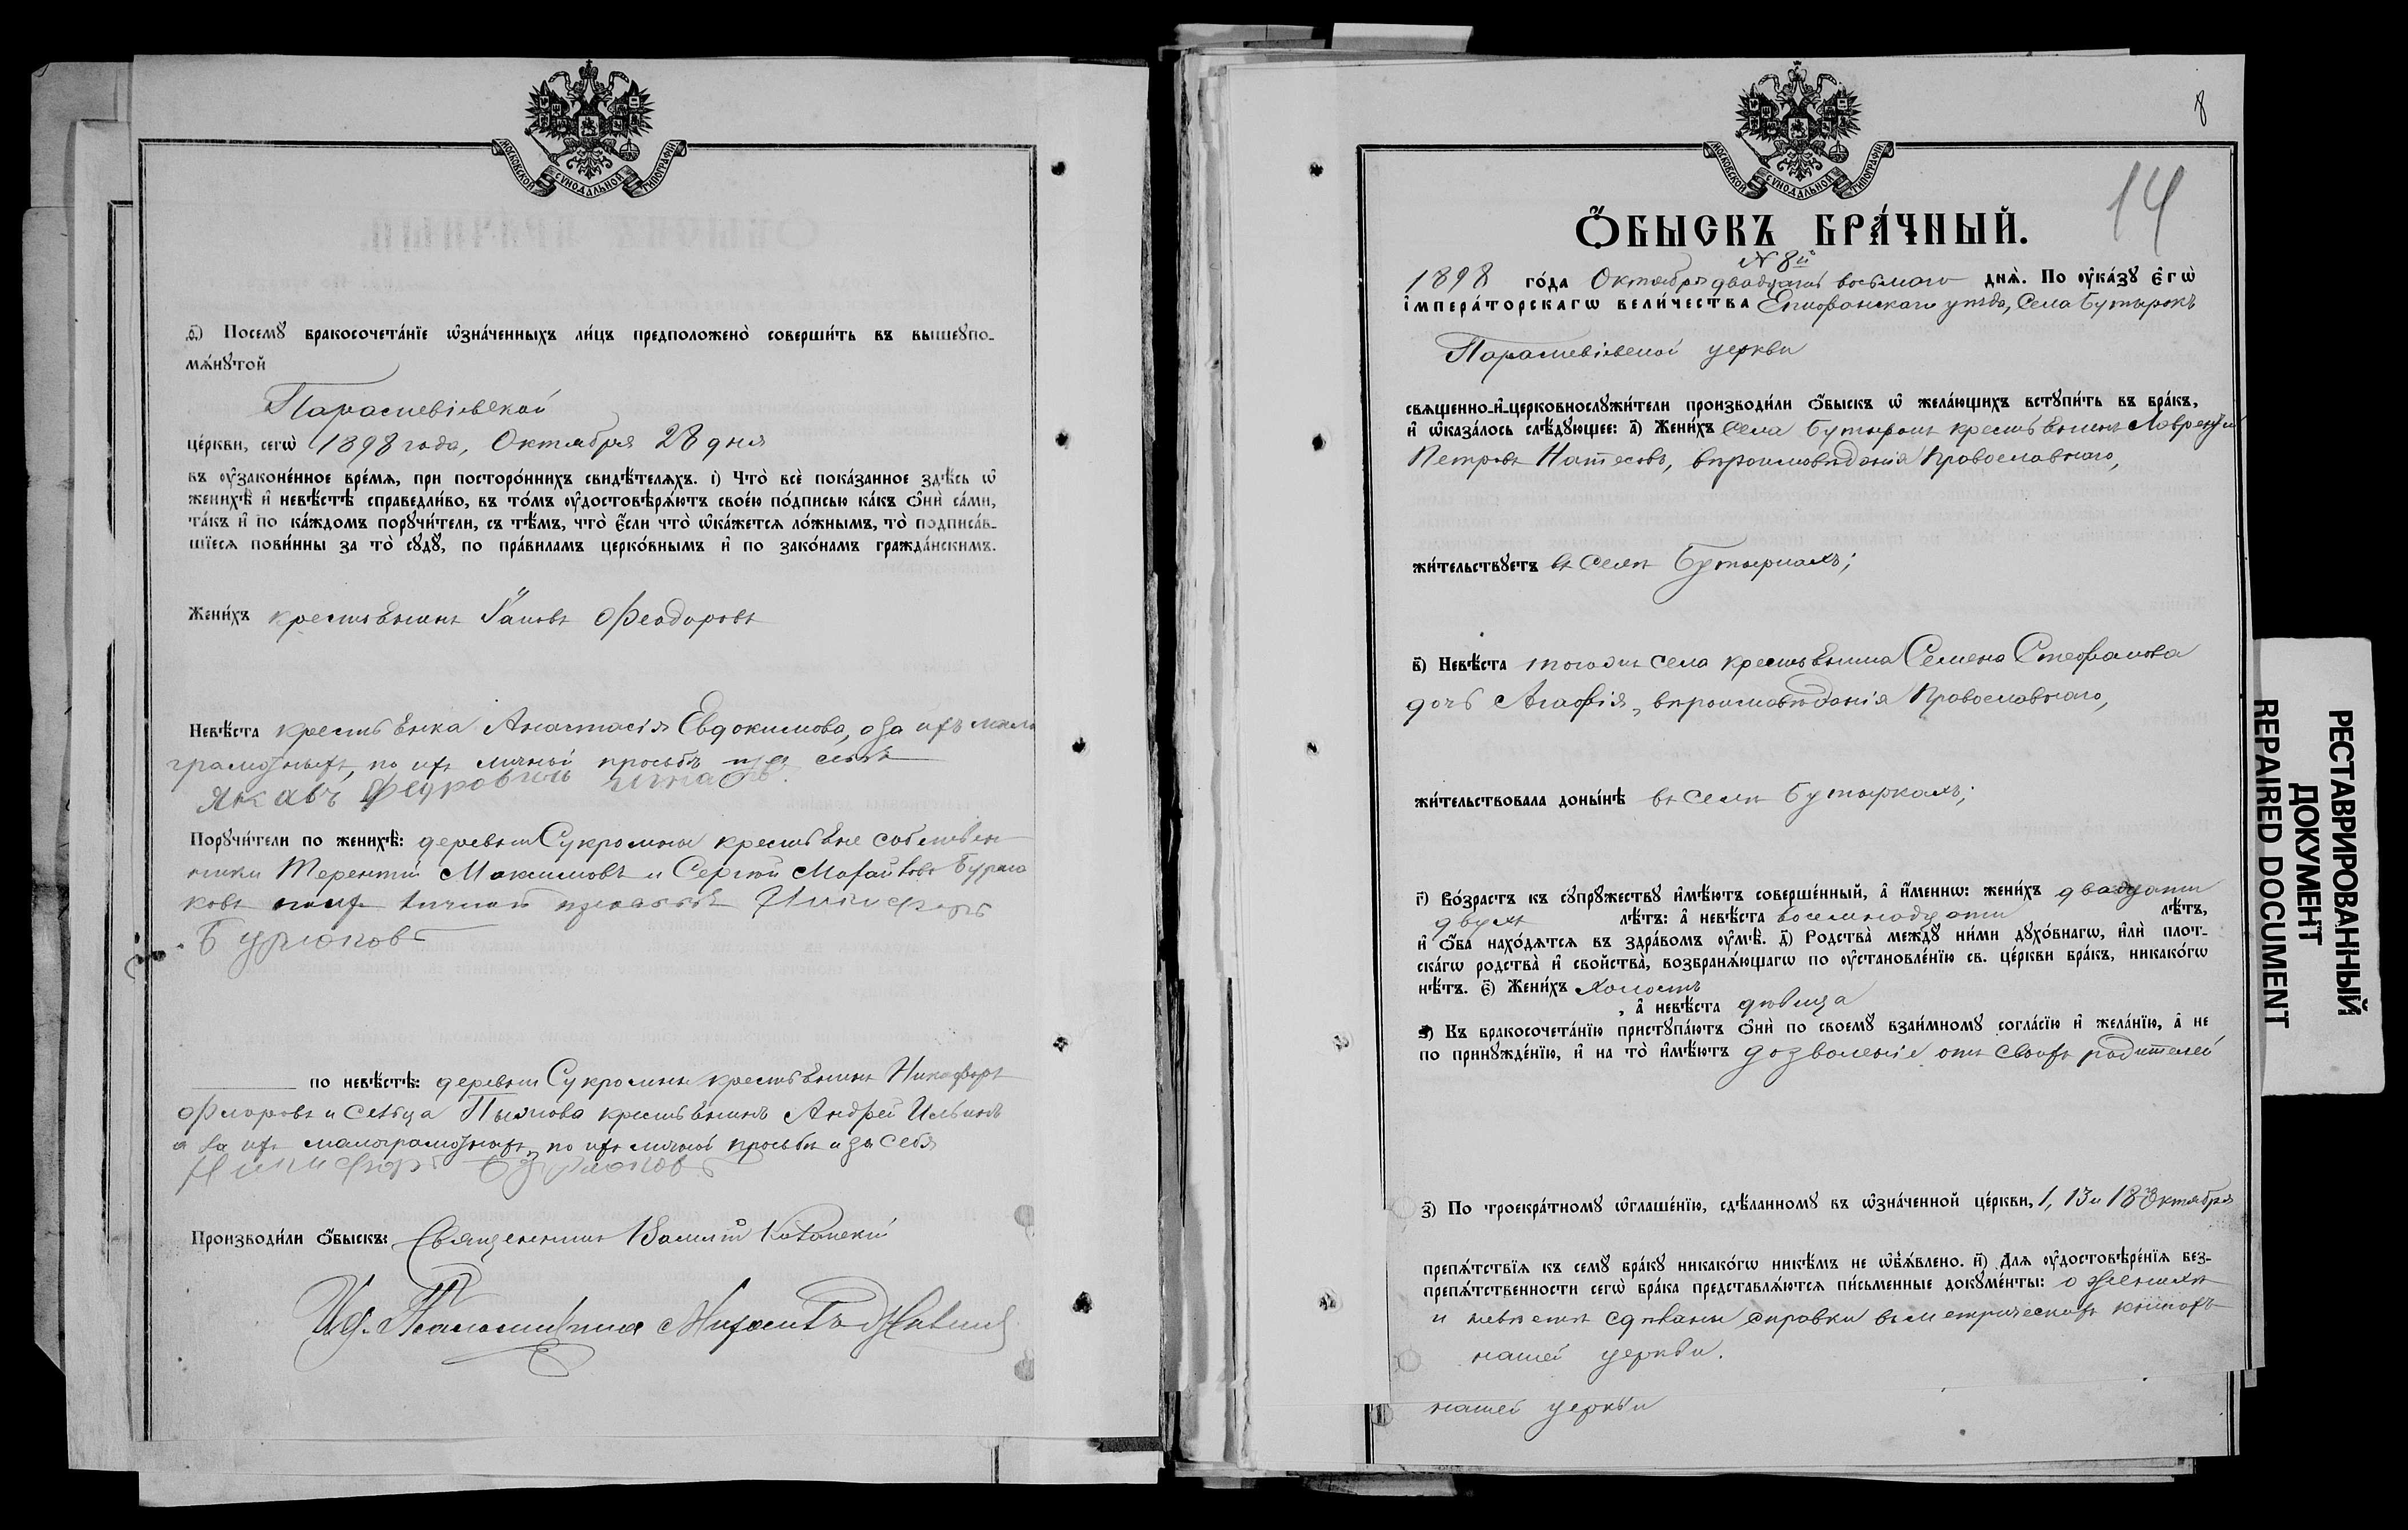 МОСКОВСКОЙ СУНОДАЛЬНОЙ ТИПОГРАФІИ
ѳ҃) Посемꙋ̀ бракосочета́нїе ѡ҆зна́ченныхъ ли́цъ предположено̀ соверши́ть въ вышеꙋпо-
мѧ́нꙋтой
Параскевіевской
це́ркви, сегѡ̀ 1898 года, Октября 28 дня
въ ᲂу҆зако́ненное вре́мѧ, при посторо́ннихъ свидѣ́телѧхъ. і҃) Что̀ всѐ пока́занное здѣ́сь ѡ҆
женихѣ̀ и҆ невѣ́стѣ справедли́во, въ то́мъ ᲂу҆достовѣрѧ́ютъ свое́ю по́дписью ка́къ ѻ҆нѝ са́ми,
та́къ и҆ по ка́ждомъ порꙋчи́тели, съ тѣ́мъ, что̀ є҆́сли что̀ ѡ҆ка́жетсѧ ло́жнымъ, то̀ подписа́в-
шїесѧ пови́нны за то̀ сꙋдꙋ̀, по пра́виламъ церко́внымъ и҆ по зако́намъ гражда́нскимъ.
Жени́хъ крестьянинъ Іаковъ Ѳеодоровъ
Невѣ́ста крестьянка Анастасія Евдокимова, а за ихъ мало
грамотныхъ, по ихъ личной просьбѣ и за себя
Якавъ Федровъ
Порꙋчи́тели по женихѣ̀: деревни Сукромны крестьяне собствен
ники Терентій Максимовъ и Сергѣй Бурла
ковъ по ихъ личной просьбѣ Никифоръ
Бурлаковъ
по невѣ́стѣ: деревни Сукромны крестьянинъ Никифоръ
Флоровъ и сельца крестьянинъ Андрей Ильинъ
а за ихъ малограмотныхъ, по ихъ личной просьбѣ и за себя
Никифоръ Бурлаковъ
Производи́ли ѻ҆́быскъ: Священникъ Василій
И.д. Псаломщика
8
МОСКОВСКОЙ СУНОДАЛЬНОЙ ТИПОГРАФІИ
14
Ѻ҆́БЫСКЪ БРА́ЧНЫЙ.
№ 8й
1898 го́да Октября двадцать восьмаго днѧ̀. По ᲂу҆ка́зꙋ є҆гѡ̀
і҆мпера́торскагѡ вели́чества Епифанскаго уѣзда, Села Бутырокъ
Параскевіевской церкви
свѧщенно-и҆-церковнослꙋжи́тели производи́ли ѻ҆́быскъ ѡ҆ жела́ющихъ встꙋпи́ть въ бра́къ,
и҆ ѡ҆каза́лось слѣ́дꙋющее: а҃) Жени́хъ Села Бутырокъ крестьянинъ Лаврентій
Петровъ вѣроисповѣданія Православнаго,
жи́тельствꙋетъ въ селѣ Бутыркахъ;
в҃) Невѣ́ста тогоже села крестьянина Семена Стефанова
дочь Агафія, вѣроисповѣданія Православнаго,
жи́тельствовала доны́нѣ въ селѣ Бутыркахъ;
г҃) Во́зрастъ къ сꙋпрꙋ́жествꙋ и҆мѣ́ютъ соверше́нный, а҆ и҆́меннѡ: жени́хъ двадцати
двухъ лѣ́тъ: а҆ невѣ́ста восемнадцати лѣ́тъ,
и҆ ѻ҆́ба нахо́дѧтсѧ въ здра́вомъ ᲂу҆мѣ̀. д҃) Родства̀ междꙋ̀ ни́ми дꙋхо́внагѡ, и҆лѝ плот-
ска́гѡ родства̀ и҆ сво́йства, возбранѧ́ющагѡ по ᲂу҆становле́нїю св. це́ркви бра́къ, никако́гѡ
нѣ́тъ. є҃) Жени́хъ холостъ
, а҆ невѣ́ста дѣвица
ѕ҃) Къ бракосочета́нїю пристꙋпа́ютъ ѻ҆нѝ по своемꙋ̀ взаи́мномꙋ согла́сїю и҆ жела́нїю, а҆ не
по принꙋжде́нїю, и҆ на то̀ и҆мѣ́ютъ дозволеніе отъ своихъ родителей
з҃) По троекра́тномꙋ ѡ҆глаше́нїю, сдѣ́ланномꙋ въ ѡ҆зна́ченной це́ркви, 1, 13 и 18 Октября
препѧ́тствїѧ къ семꙋ̀ бра́кꙋ никако́гѡ никѣ́мъ не ѡ҆б̾ѧ́влено. и҃) Длѧ ᲂу҆достовѣре́нїѧ без-
препѧ́тственности сегѡ̀ бра́ка представлѧ́ютсѧ пи́сьменные докꙋме́нты: о женихѣ
и невѣстѣ сдѣланы справки въ метрическихъ книгахъ
нашей церкви.
нашей церкви
РЕСТАВРИРОВАННЫЙ
ДОКУМЕНТ
REPAIRED DOCUMENT